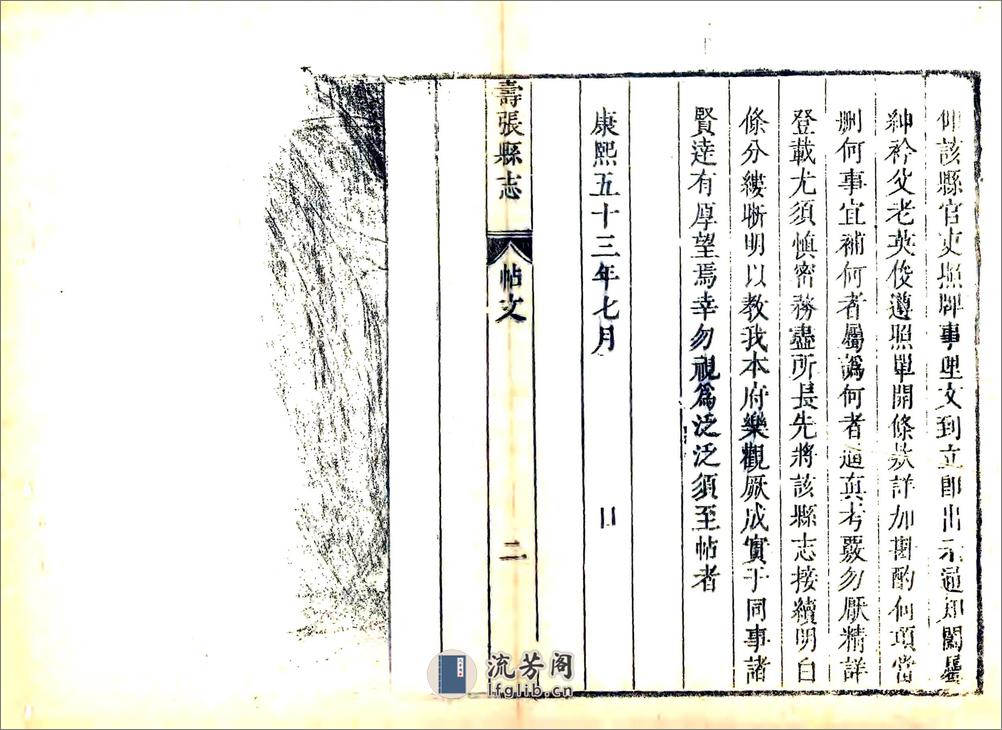 仰該縣官吏照牌事理文到立即出示通知闔縣
紳衿父老英俊遵照單開條款詳加斟酌何項當
刪何事宜補何者屬譌何者逼真考覈勿厭精詳
登載尤須慎密務盡所長先將該縣志接續明白
條分縷晰明以教我本府樂觀厥成實于同事諸
賢達有厚望焉幸勿視爲泛泛須至帖者
康熙五十三年七月 日
壽張縣志 帖文 二
流芳阁
lfglib.cn